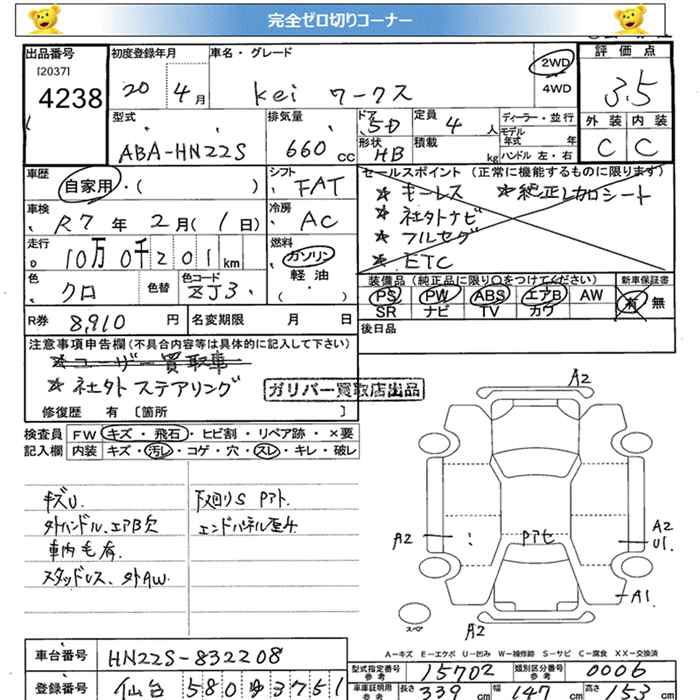 完全ゼロ切りコーナー
出品番号 初度登録年月 車名・グレード 評価点
[2037]
4238 20 4月 Kei ワークス 2WD 4WD 3.5
型式 排気量 ドア 5D 定員 4人 ディーラー・並行 外装 内装
ABA-HN22S 660cc 形状 HB 積載 kg モデル年式 年 C C
ハンドル 左・右
車歴 シフト セールスポイント (正常に機能するものに限ります)
自家用・( ) FAT ★キーレス ★純正レカロシート
車検 冷房 ★社外ナビ
R7年2月(1日) AC ★フルセグ
走行 燃料 ★ETC
10万0千201km ガソリン 軽油 ・( )
色 色替 色コード 装備品 (純正品に限り○をつけてください) 新車保証書
クロ ZJ3 PS PW ABS エアB AW 有 無
SR ナビ TV カワ
R券 8,910円 名変期限 月 日 後日品
注意事項申告欄(不具合内容等は具体的に記入して下さい)
★ユーザー買取車
★社外ステアリング
ガリバー買取店出品
修復歴 有 [箇所 ]
検査員 FW キズ・飛石・ヒビ割・リペア跡・×要
記入欄 内装 キズ・汚レ・コゲ・穴・スレ・キレ・破レ
キズU. 下廻りS Pアト.
外ハンドル、エアB欠 エンドパネル歪み
車内毛有.
スタッドレス、外AW.
A2
A2
Pアセ
A2
U1.
A1.
A2
スペア
A-キズ E-エクボ U-凹み W-補修跡 S-サビ C-腐食 XX-交換済
車台番号 HN22S-832208
型式指定番号 参考 15702 類別区分番号 参考 0006
登録番号 仙台 580 ゆ 3751
車庫証明用 参考 長さ 339cm 幅 147cm 高さ 153cm